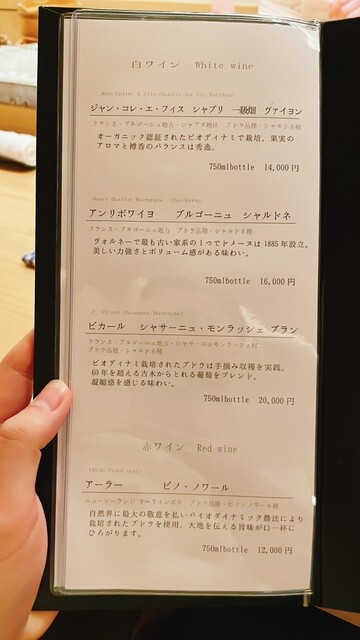 白ワイン　White wine
ジャン・コレ・エ・フィス　シャブリ　一級畑　ヴァイヨン
フランス・ブルゴーニュ地方・シャブリ地区　ブドウ品種・シャルドネ種
オーガニック認証されたビオディナミで栽培。果実の
アロマと樽香のバランスは秀逸。
750mlbottle　14,000円
アンリボワイヨ　ブルゴーニュ　シャルドネ
フランス・ブルゴーニュ地方　ブドウ品種・シャルドネ種
ヴォルネーで最も古い家系の1つでドメーヌは1885年設立。
美しい力強さとボリューム感がある味わい。
750mlbottle　16,000円
ピカール　シャサーニュ・モンラッシェ　ブラン
フランス・ブルゴーニュ地方・シャサーニュモンラッシェ村
ブドウ品種・シャルドネ種
ビオディナミ栽培されたブドウは手摘み収穫を実践。
60年を超える古木からとれる葡萄をブレンド。
凝縮感を感じる味わい。
750mlbottle　20,000円
赤ワイン　Red wine
アーラー　ピノ・ノワール
ニュージーランド　マーティンボロ　ブドウ品種・ピノ・ノワール種
自然界に最大の敬意を払いバイオダイナミック農法により
栽培されたブドウを使用。大地を伝える旨味が口一杯に
ひろがります。
750mlbottle　12,000円